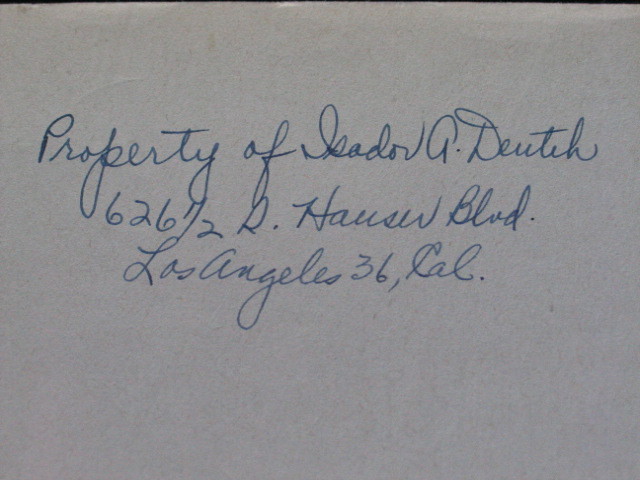 Property of Isador A. Deutch
626 1/2 S. Hauser Blvd.
Los Angeles 36, Cal.